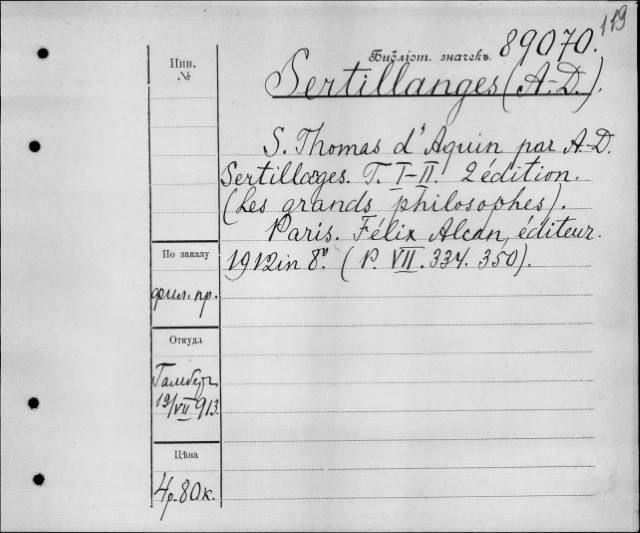 119
Библіот. значекъ 89070.
Инв.
№
Sertillanges (A.-D.).
S. Thomas d'Aquin par A-D.
Sertillæges. T. I-II. 2 édition.
(Les grands philosophes).
Paris. Félix Alcan, éditeur.
1912 in 8º. (P. VII. 334. 350).
По заказу
фил. пр.
Откуда
19/VII 913.
Цѣна
4р. 80к.